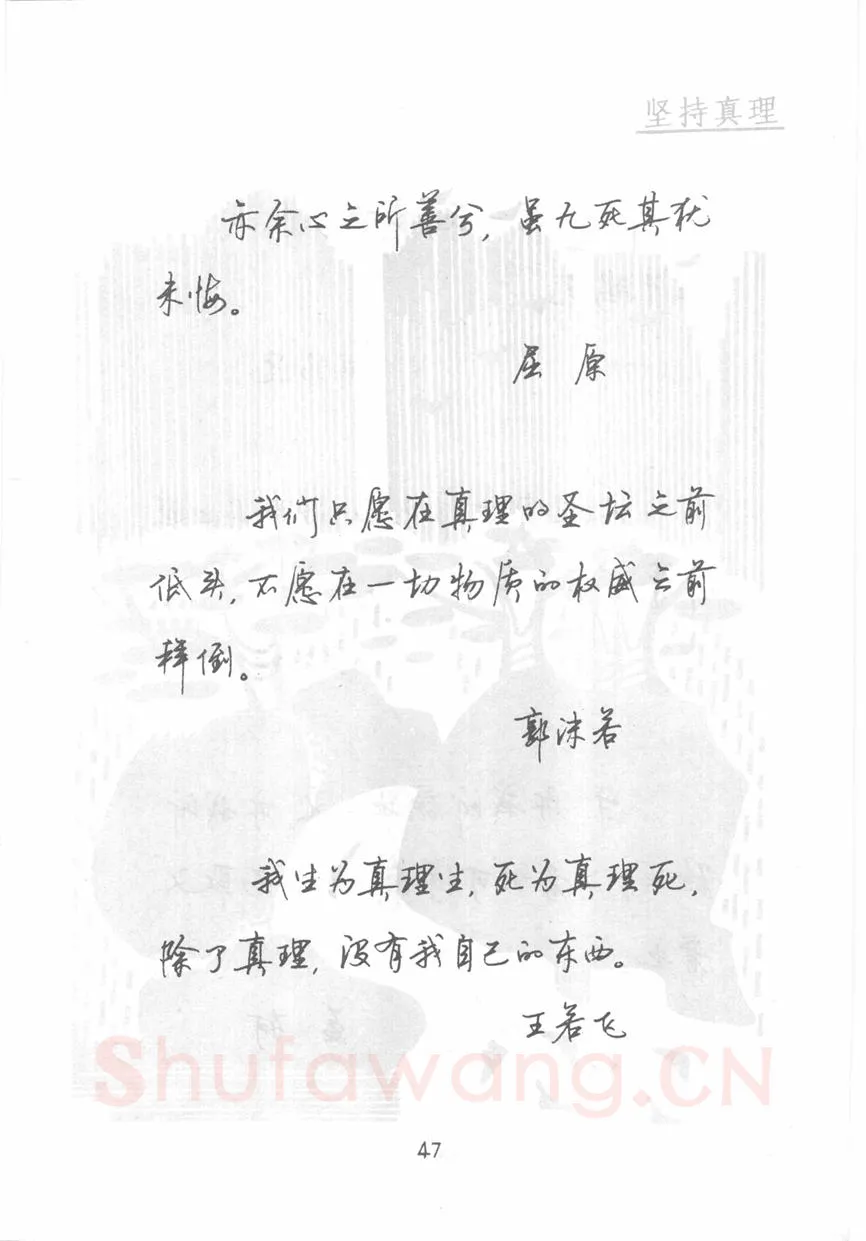 坚持真理
亦余心之所善兮，虽九死其犹
未悔。
屈原
我们只愿在真理的圣坛之前
低头，不愿在一切物质的权威之前
拜倒。
郭沫若
我生为真理生，死为真理死，
除了真理，没有我自己的东西。
王若飞
Shufawang.CN
47